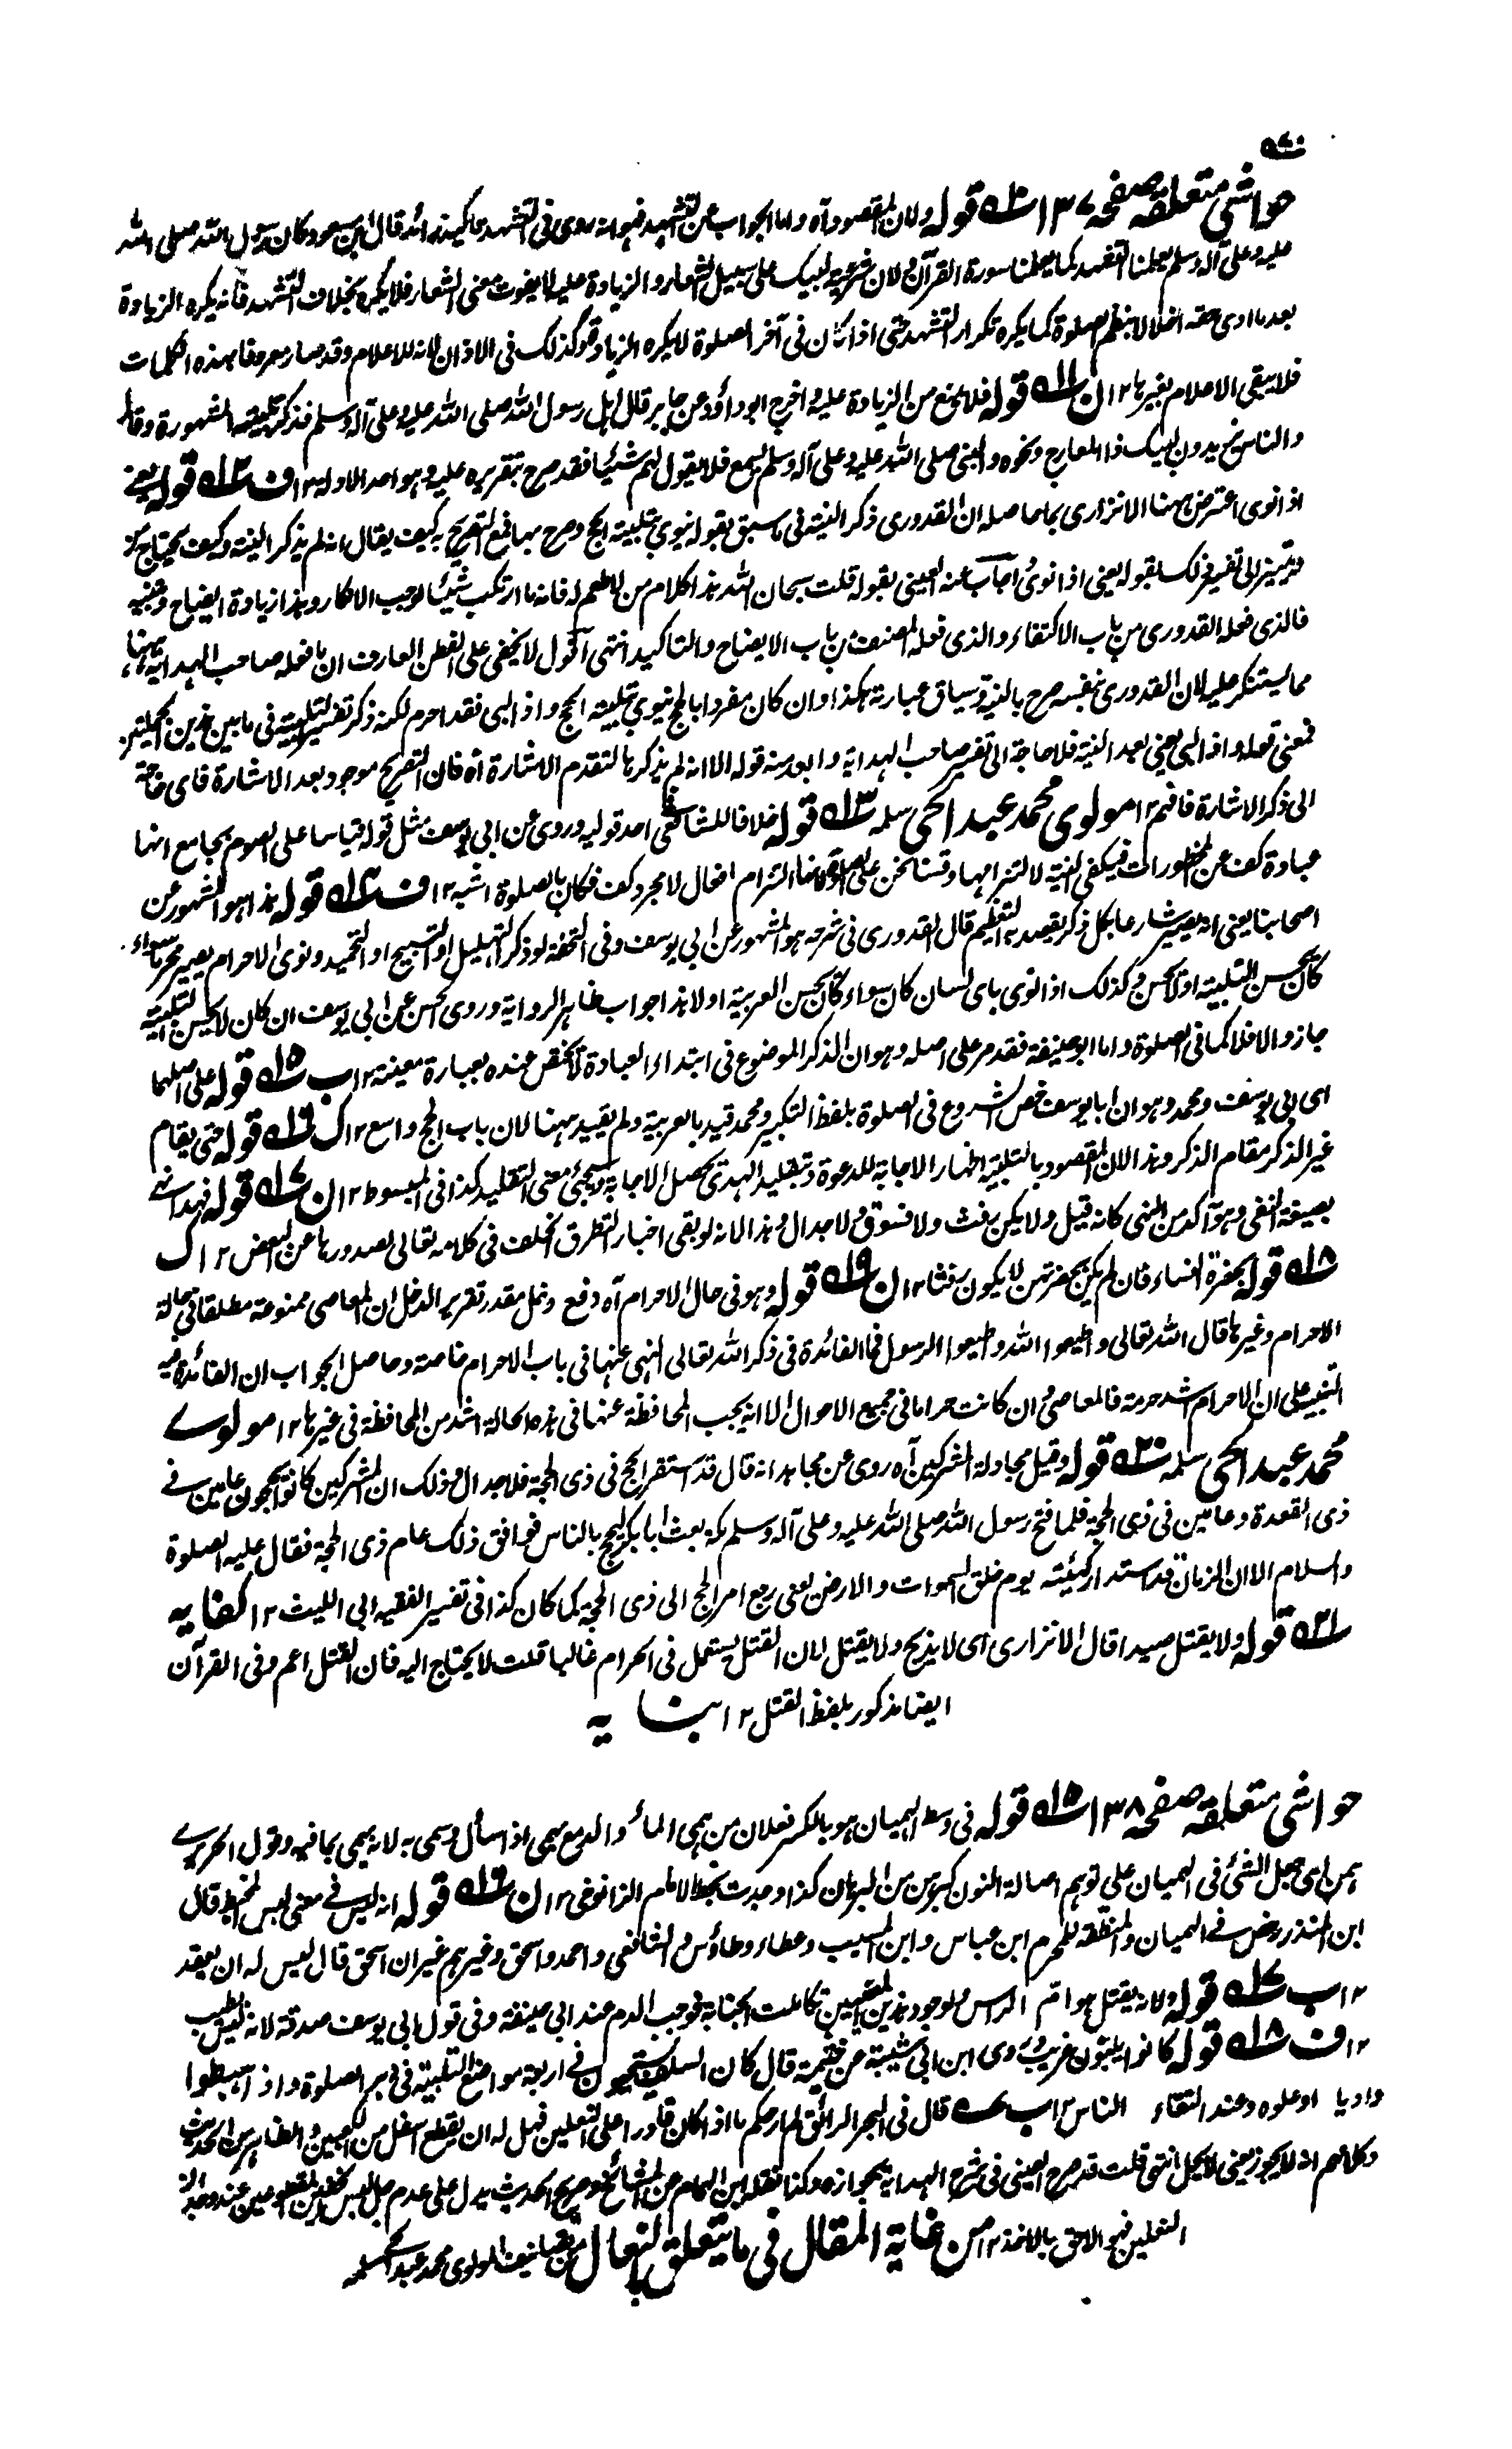 ٥٧٠
حواشی متعلقہ صفحہ ١٣٧ ١٠ قوله ولان المقصود آه واما الجواب عن التشهد فهو انه روى فى التشهد تاكيد زائد قال ابن مسعود كان رسول الله صلى الله
عليه وعلى آله وسلم يعلمنا التشهد كما يعلمنا سورة القرآن ولان شرعية لبيك على سبيل الشعار والزيادة عليه لا يفوت معنى الشعار فلا يكره بخلاف التشهد فانه يكره الزيادة
بعد ما ادى حقه اخلالا بنظم الصلوة كما يكره تكرار التشهد حتى اذا كان فى آخر الصلوة لا يكره الزيادة وكذلك فى الاذان لانه للاعلام وقد صار معروفا بهذه الكلمات
فلا يبقى الاعلام بغيرها ١٢ ن ١١ قوله فلا يمنع من الزيادة عليه واخرج ابو داؤد عن جابر قال اهل رسول الله صلى الله عليه وعلى آله وسلم فذكر تلبيته المشهورة وقال
والناس يزيدون لبيك ذا المعارج ونحوه والنبى صلى الله عليه وعلى آله وسلم يسمع فلا يقول لهم شيئا فقد صرح بتقريره عليه وهو احد الادلة ١٢ ف ١٢ قوله يعنے
اذا نوى اعترض ههنا الاتزارى بما حاصله ان القدورى ذكر النية فى ما سبق بقوله ينوى بتلبيته الحج وصرح بها فمع التصريح به كيف يقال انه لم يذكر النية وكيف يحتاج
وتميز الى تفسير ذلك بقوله يعنى اذا نوى اجاب عنه العينى بقوله قلت سبحان الله هذا كلام من لا طعم له فانه ما ارتكب شيئا لوجب الانكار وهذا زيادة ايضاح وتنبيه
فالذى فعله القدورى من باب الاكتفاء والذى فعله المصنف من باب الايضاح والتاكيد انتهى اقول لا يخفى على الفطن العارف ان ما فعله صاحب الهداية ههنا
مما يستنكر عليه لان القدورى نفسه صرح بالنية وسياق عبارته هكذا وان كان مفردا بالحج ينوى بتلبيته الحج واذا لبى فقد احرم لكنه ذكر تفسير التلبية فى ما بين هذين الجملتين
فمعنى قوله واذا لبى يعنى بعد النية فلا حاجة الى تفسير صاحب الهداية وابعد منه قوله الا انه لم يذكرها لتقدم الاشارة آه فان التصريح موجود بعد الاشارة فاى حاجة
الى ذكر الاشارة فافهم ١٢ مولوى محمد عبد الحى سلمه ١٣ قوله خلافا للشافعى احد قوليه وروى عن ابى يوسف مثل قوله قياسا على الصوم بجامع انها
عبادة كف عن المحظورات فيكفى النية لالتزامها وقسنا نحن على الصلوة لانها التزام افعال لا مجرد كف فكان بالصلوة اشبه ١٢ ف ١٤ قوله هذا هو المشهور عن
اصحابنا يعنى انه يصير شارعا بكل ذكر يقصد به التعظيم قال القدورى فى شرحه هو المشهور عن ابى يوسف وفى التحفة لو ذكر التهليل او التسبيح او التحميد ونوى الاحرام يصير محرما سواء
كان يحسن التلبية او لا يحسن وكذلك اذا نوى باى لسان كان سواء كان يحسن العربية او لا هذا جواب ظاهر الرواية وروى الحسن عن ابى يوسف ان كان لا يحسن التلبية
جاز والا فلا كما فى الصلوة واما ابو حنيفة فقد مر على اصله وهو ان الذكر الموضوع فى ابتداء العبادة لا يختص عنده بعبارة معينة ١٢ ب ١٥ قوله على اصلهما
اى ابى يوسف ومحمد وهو ان ابا يوسف خص الشروع فى الصلوة بلفظ التكبير ومحمد قيد بالعربية ولم يقيد ههنا لان باب الحج واسع ١٢ ک ١٦ قوله حتى يقام
غير الذكر مقام الذكر وهذا لان المقصود بالتلبية اظهار الاجابة للدعوة وبتقليد الهدى يحصل الاجابة وسيجئ معنى التقليد كذا فى المبسوط ١٢ ن ١٧ قوله فهذا نهے
بصيغة النفى وهو آكد من النهى كانه قيل ولا يكن رفث ولا فسوق ولا جدال وهذا لانه لو بقى اخبارا لتطرق الخلف فى كلامه تعالى لصدورها عن البعض ١٢ ک
١٨ قوله بحضرة النساء فان لم يكن بحضرتهن لا يكون رفثا ١٢ ن ١٩ قوله وهو فى حال الاحرام آه دفع دخل مقدر تقرير الدخل ان المعاصى ممنوعة مطلقا فى حالة
الاحرام وغيرها قال الله تعالى واطيعوا الله واطيعوا الرسول فما الفائدة فى ذكر الله تعالى النهى عنها فى باب الاحرام خاصة وحاصل الجواب ان الفائدة فيه
التنبيه على ان الاحرام اشد حرمة فالمعاصى وان كانت حراما فى جميع الاحوال الا انه يجب المحافظة عنها فى هذه الحالة اشد من المحافظة فى غيرها ١٢ مولوے
محمد عبد الحى سلمه ٢٠ قوله وقيل مجادلة المشركين آه روى عن مجاهد انه قال قد استقر الحج فى ذى الحجة فلا جدال وذلك ان المشركين كانوا يحجون عامين فے
ذى القعدة وعامين فى ذى الحجة فلما فتح رسول الله صلى الله عليه وعلى آله وسلم مكة بعث ابا بكر ليحج بالناس فوافق ذلك عام ذى الحجة فقال عليه الصلوة
والسلام الا ان الزمان قد استدار كهيئته يوم خلق السموات والارض يعنى رجع امر الحج الى ذى الحجة كما كان كذا فى تفسير الفقيه ابى الليث ١٢ كفايه
٢١ قوله ولا يقتل صيدا قال الاتزارى اى لا يذبح ولا يقتل لان القتل يستعمل فى الحرام غالبا قلت لا يحتاج اليه فان القتل اعم وفى القرآن
ايضا مذكور بلفظ القتل ١٢ بنايه
حواشی متعلقہ صفحہ ١٣٨ ١٥ قوله فى وسطه الهميان هو بالكسر فعلان من همى الماء والدمع يهمى اذا سال وسمى به لانه يهمى بما فيه وقول الحريرے
يهمن اى جعل الشئ فى الهميان على توهم اصالة النون كذا وجدت بخط الامام الزانوخى ١٢ ن ١٦ قوله انه ليس فے معنى لبس المخيط قال
ابن المنذر رخص فے الهميان والمنطقة للمحرم ابن عباس وابن المسيب وعطاء وطاؤس والشافعى واحمد واسحق وغيرهم غير ان اسحق قال ليس له ان يعقد
١٢ ب ١٧ قوله ولانه يقتل هوام الراس ولوجود هذين المعنيين تكاملت الجناية فوجب الدم عند ابى حنيفة وفى قول ابى يوسف صدقة لانه ليس بطيب
١٢ ف ١٨ قوله كانوا يلبون غريب وروى ابن ابى شيبة عن خيثمة قال كان السلف يستحبون فے اربعة مواضع التلبية فى دبر الصلوة واذا هبطوا
واديا او علوه وعند التقاء الناس ١٢ ب قال فى البحر الرائق لم ار حكم ما اذا كان قادرا على النعلين فهل له ان يقطع اسفل من الكعبين والظاهر من الحديث
وكلامهم انه لا يجوز يعنى لا يحل انتهى قلت قد صرح العينى فى شرح الهداية بجوازه وكذا نقله ابن الهمام عن المشائخ وصريح الحديث يدل على عدم حل لبس الخفين المقطوعين عند وجدان
النعلين فهو الاحق بالاخذ ١٢ من غاية المقال فى ما يتعلق بالنعال من تصانيف المولوى محمد عبد الحى سلمه